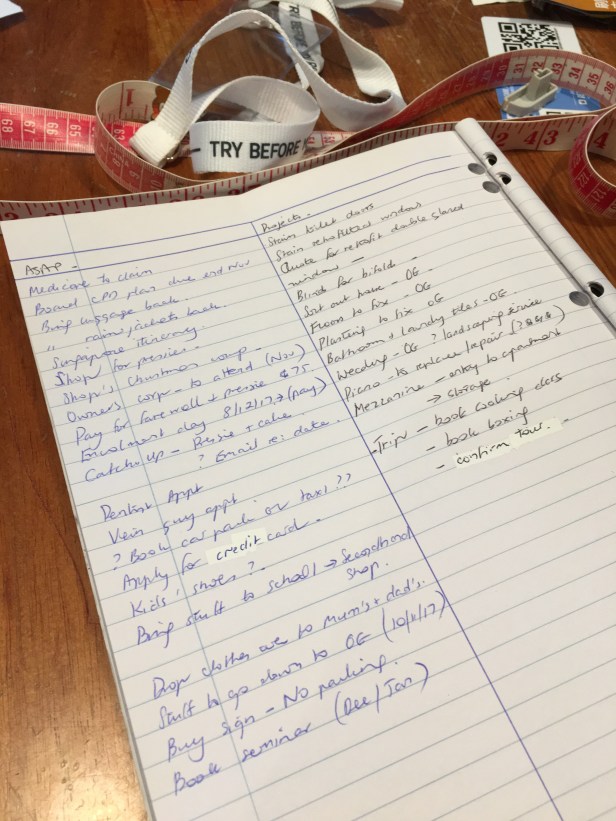 TRY BEFORE
ASAP -
Medicine to claim
Board CPD plan due end Nov
Bring luggage back.
" rain jackets back.
Singapore itinerary.
Shop for pressies.
Shop's Christmas
Owner's corp - to attend (Nov)
Pay for farewell + pressie $75
Enrolment day 8/12/17 → (pay)
Catch up - Pressie + cake
? Email re: date.
Dentist Appt
Vein guy appt
? Book car park or taxi ??
Apply for credit card.
Kids' shoes ?
Bring stuff to school → Secondhand
shop.
Drop clothes over to Mum's + dad's.
Stuff to go down to OG (10/11/17)
Buy sign - No parking.
Book seminar (Dec/Jan)
Projects.
Stain toilet doors
Stain windows
Quote for retrofit double glazed
window -
Blinds for bifolds -
Sort out house - OG
Floors to fix - OG
Planting to fix OG
Bathroom + Laundry tiles - OG.
Weeding - OG ? landscaping service
Piano - to replace/repair (? $$$)
Mezzanine - entry to apartment
→ storage
Trip - book cooking class
- book boxing
- confirm tour.